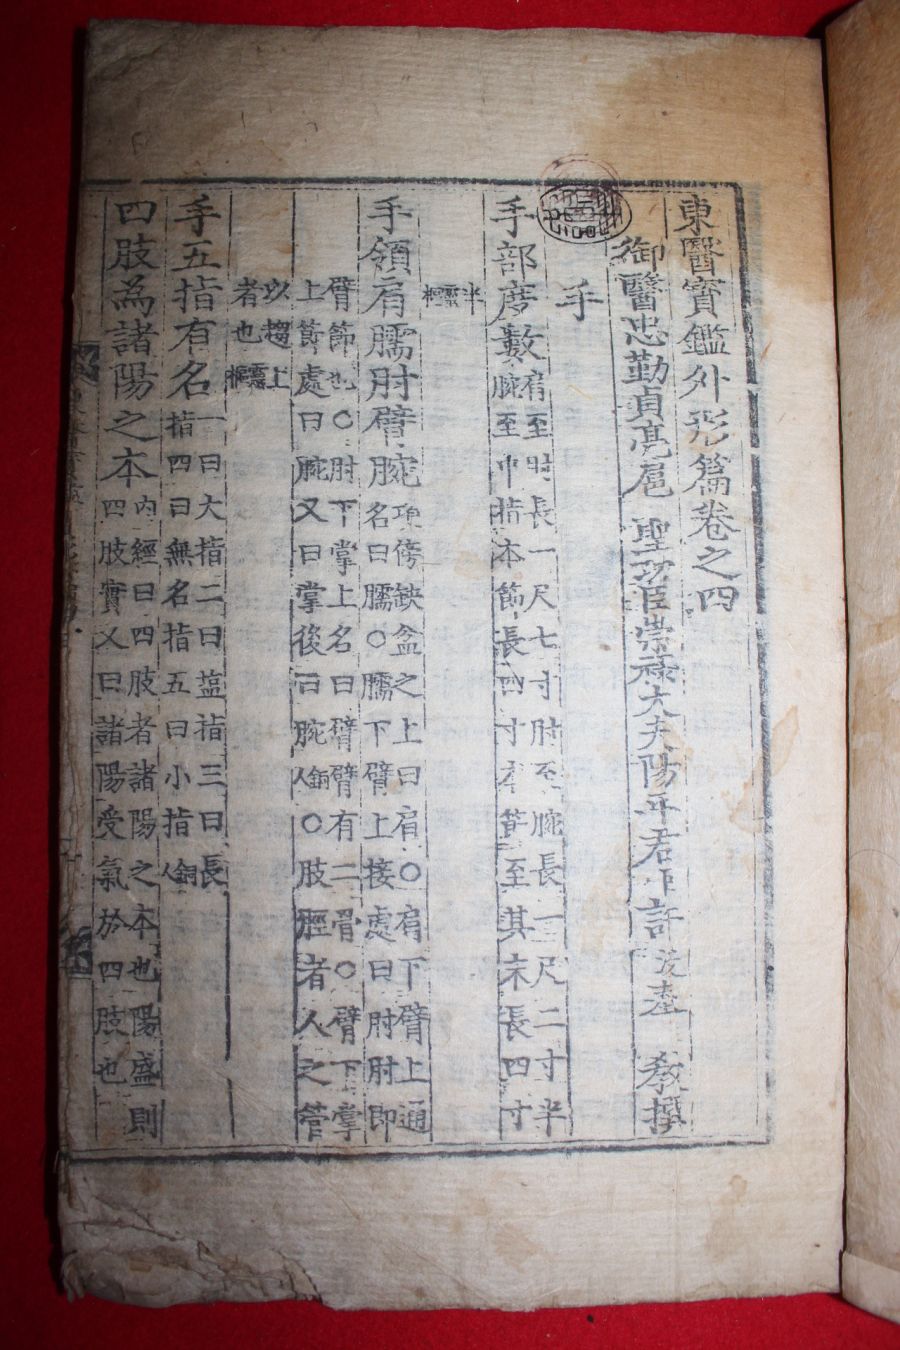 東醫寶鑑外形篇卷之四
御醫忠勤貞亮扈 聖功臣崇祿大夫陽平君臣許 浚奉 敎撰
手
手部度數 肩至肘長一尺七寸肘至腕長一尺二寸半
腕至中指本節長四寸本節至其末長四寸
半 靈樞
手領肩臑肘臂腕 項傍缺盆之上曰肩○肩下臂上通
名曰臑○臑下臂上接處曰肘肘即
臂節也○肘下掌上名曰臂臂有二骨○臂下掌
上節處曰腕又曰掌後曰腕 銅人 ○肢脛者人之管
以趨上
者也 靈樞
手五指有名 一曰大指二曰塩指三曰長
指四曰無名指五曰小指 銅人
四肢為諸陽之本 內經曰四肢者諸陽之本也陽盛則
四肢實又曰諸陽受氣於四肢也